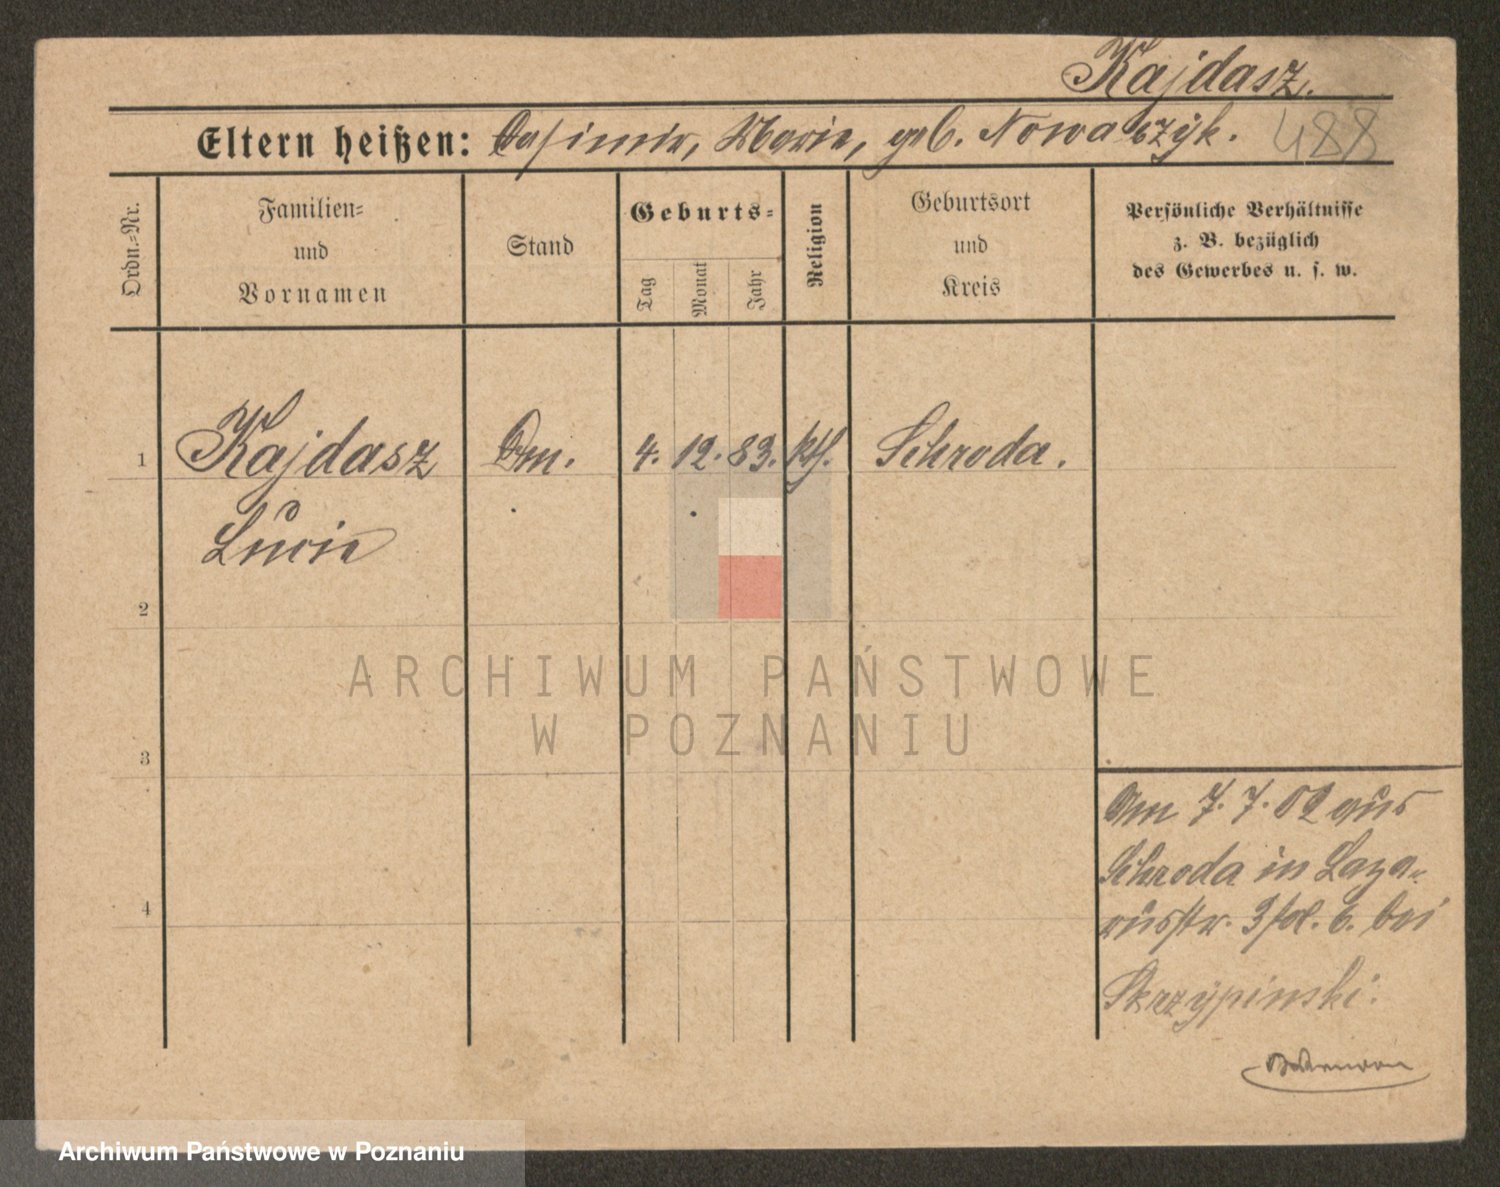 Kajdasz.
Eltern heißen: Casimir, Marie, geb. Nowaczyk. 488
Ordn.=Nr.
Familien=
und
Vornamen
Stand
Geburts=
Tag
Monat
Jahr
Religion
Geburtsort
und
Kreis
Persönliche Verhältnisse
z. B. bezüglich
des Gewerbes u. s. w.
1 Kajdasz Dm. 4. 12. 83. kth. Schroda.
Lucie
2
3
4
Am 7. 7. 02 aus
Schroda in Laza-
russtr. 3/ol. 6. bei
Skrzypinski.
ARCHIWUM PAŃSTWOWE
W POZNANIU
Archiwum Państwowe w Poznaniu